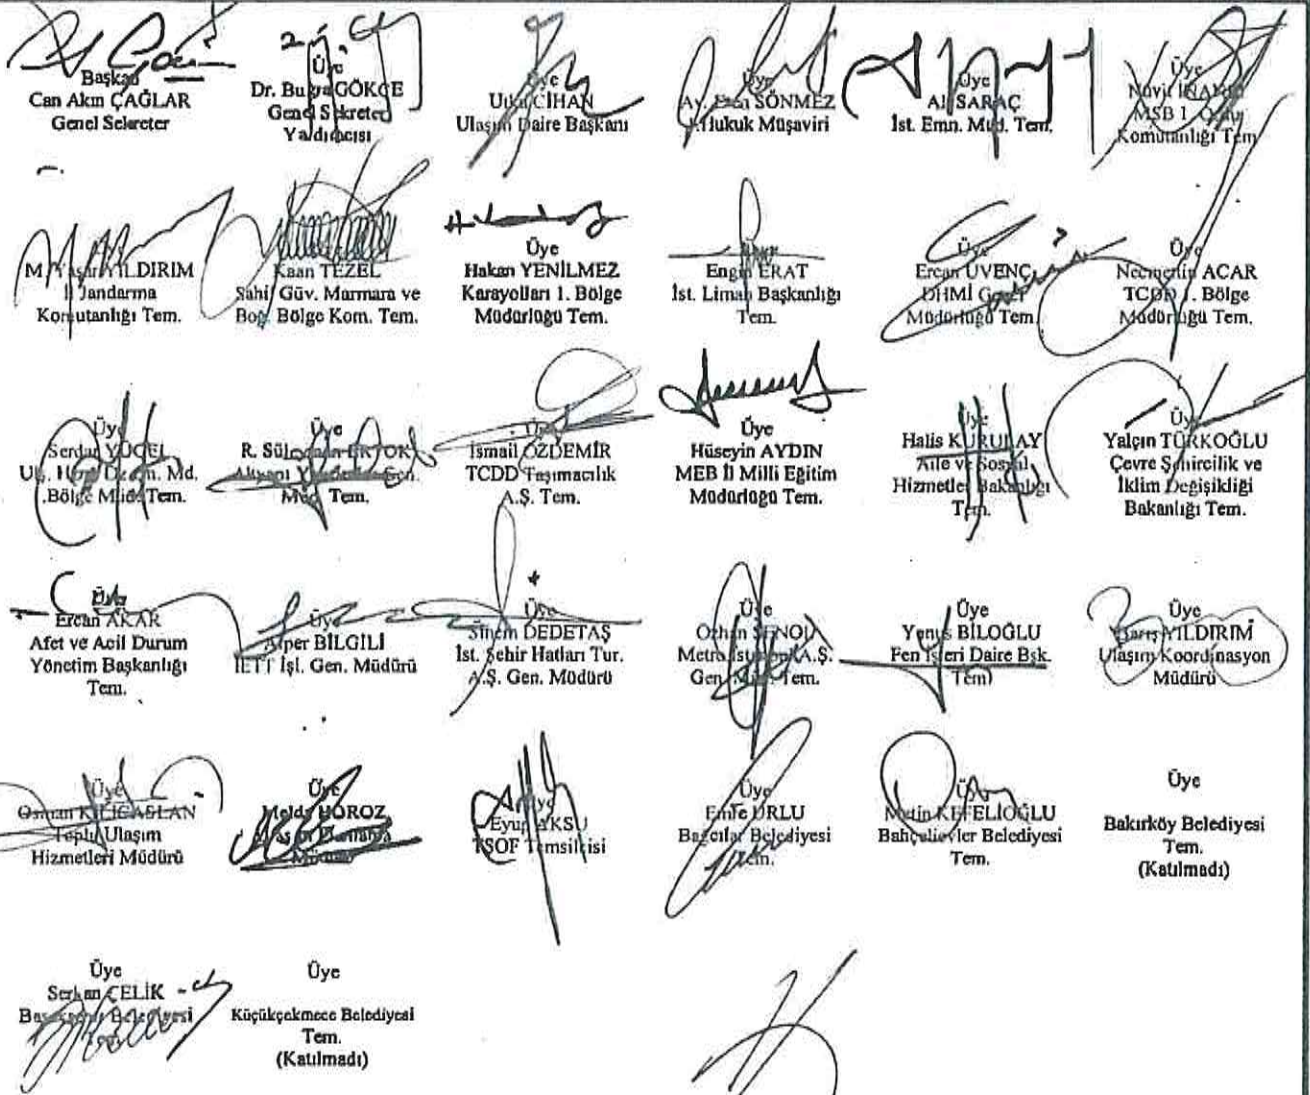 Başkan
Can Akın ÇAĞLAR
Genel Sekreter
Üye
Dr. Buğra GÖKCE
Genel Sekreter
Yardımcısı
Üye
Utku CİHAN
Ulaşım Daire Başkanı
Üye
Av. Eren SÖNMEZ
Hukuk Müşaviri
Üye
Ali SARAÇ
İst. Emn. Müd. Tem.
Üye
MSB 1. Ordu
Komutanlığı Tem
M. Yaşar YILDIRIM
İl Jandarma
Komutanlığı Tem.
Kaan TEZEL
Sahil Güv. Marmara ve
Boğ. Bölge Kom. Tem.
Üye
Hakan YENİLMEZ
Karayolları 1. Bölge
Müdürlüğü Tem.
Engin ERAT
İst. Liman Başkanlığı
Tem.
Üye
Ercan ÜVENÇ
DHMİ Genel
Müdürlüğü Tem.
Üye
Necmettin ACAR
TCDD 1. Bölge
Müdürlüğü Tem.
Üye
Serdar YÜCEL
Bölge Müd. Tem.
Üye
R. Süleyman ERTOK
Müd. Tem.
Üye
İsmail ÖZDEMİR
TCDD Taşımacılık
A.Ş. Tem.
Üye
Hüseyin AYDIN
MEB İl Milli Eğitim
Müdürlüğü Tem.
Üye
Halis KURULAY
Aile ve Sosyal
Hizmetler Bakanlığı
Tem.
Üye
Yalçın TÜRKOĞLU
Çevre Şehircilik ve
İklim Değişikliği
Bakanlığı Tem.
Üye
Ercan AKAR
Afet ve Acil Durum
Yönetim Başkanlığı
Tem.
Üye
Alper BİLGİLİ
İETT İşl. Gen. Müdürü
Üye
Sinem DEDETAŞ
İst. Şehir Hatları Tur.
A.Ş. Gen. Müdürü
Üye
Metro İstanbul A.Ş.
Gen. Müd. Tem.
Üye
Yunus BİLOĞLU
Fen İşleri Daire Bşk.
Tem
Üye
Barış YILDIRIM
Ulaşım Koordinasyon
Müdürü
Üye
Osman KILIÇASLAN
Toplu Ulaşım
Hizmetleri Müdürü
Üye
Melda HOROZ
Üye
Eyup AKSU
TSOF Temsilcisi
Üye
Emre ÜRLU
Bağcılar Belediyesi
Tem.
Üye
Metin KEFELİOĞLU
Bahçelievler Belediyesi
Tem.
Üye
Bakırköy Belediyesi
Tem.
(Katılmadı)
Üye
Serkan ÇELİK
Başakşehir Belediyesi
Üye
Küçükçekmece Belediyesi
Tem.
(Katılmadı)